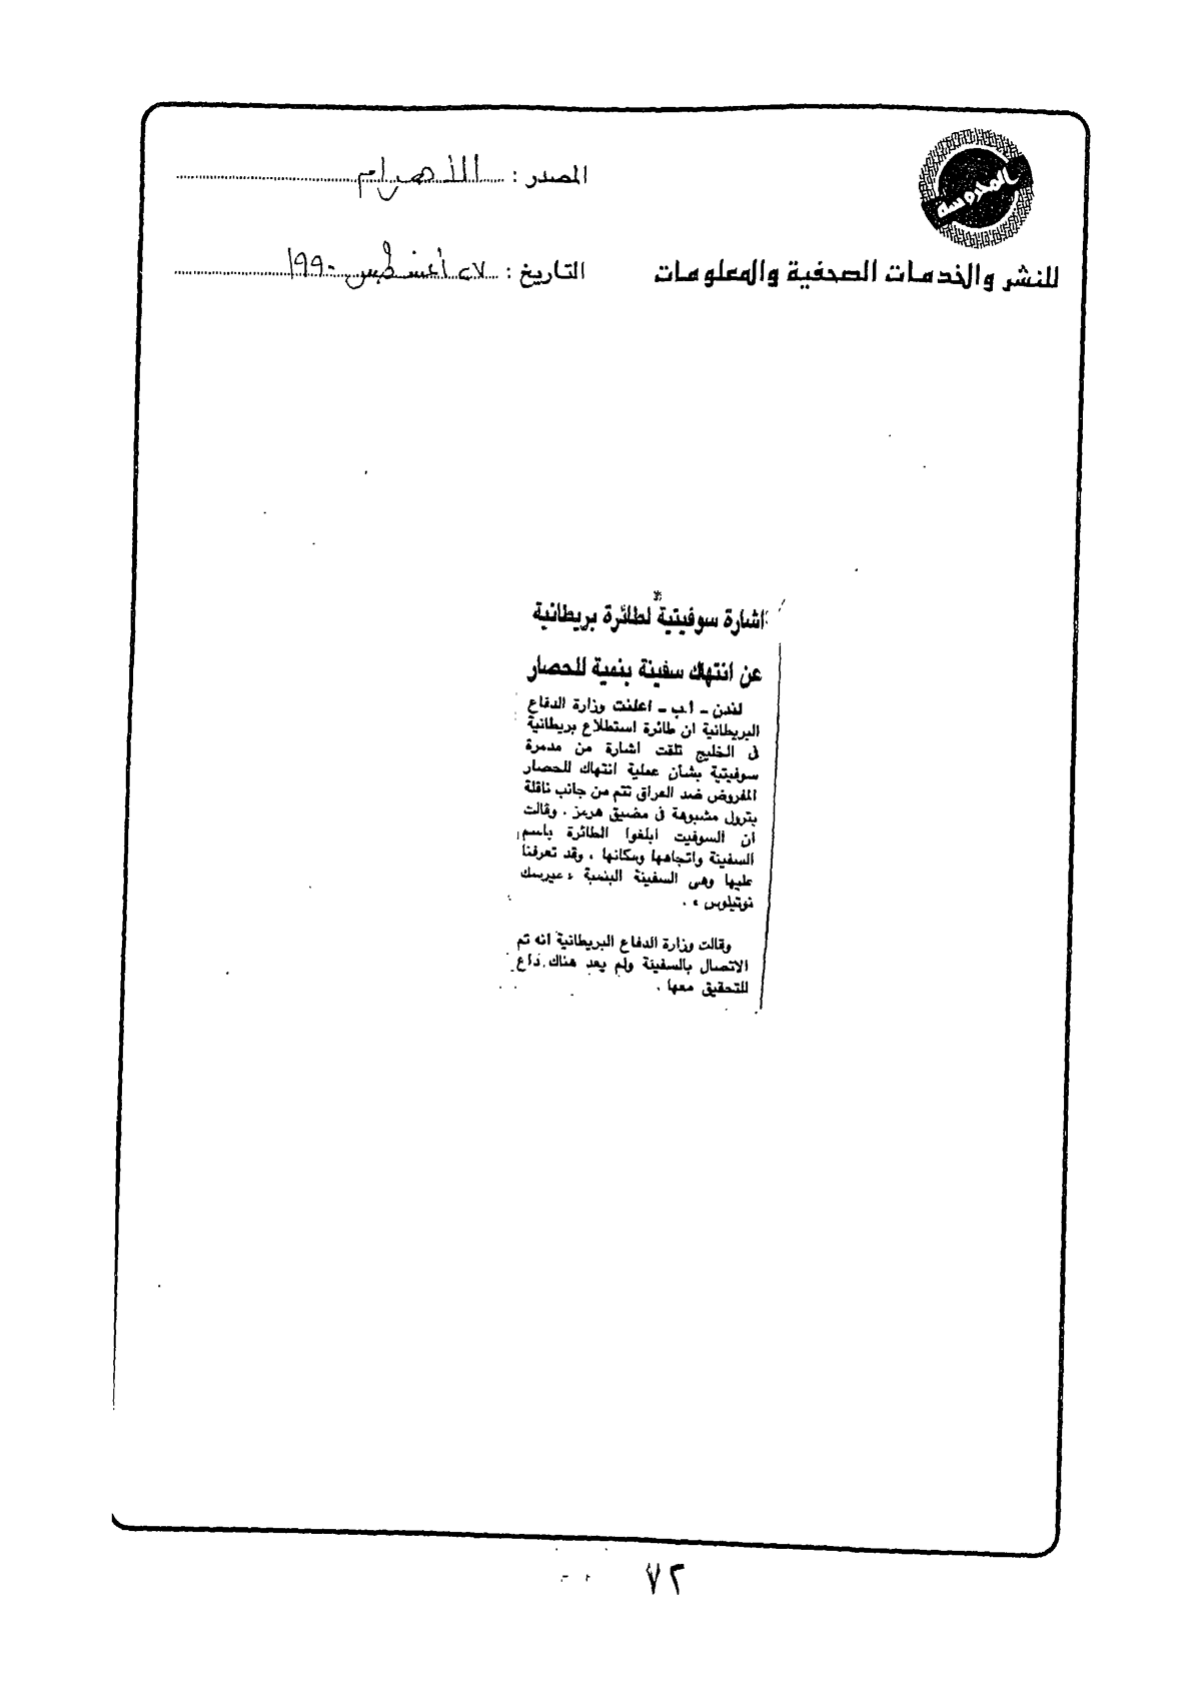 المحروسة
للنشر والخدمات الصحفية والمعلومات
المصدر : الأهرام
التاريخ : ٢٧ أغسطس ١٩٩٠
اشارة سوفيتية لطائرة بريطانية
عن انتهاك سفينة بنمية للحصار
لندن - ا.ب - اعلنت وزارة الدفاع
البريطانية ان طائرة استطلاع بريطانية
فى الخليج تلقت اشارة من مدمرة
سوفيتية بشأن عملية انتهاك للحصار
المفروض ضد العراق تتم من جانب ناقلة
بترول مشبوهة فى مضيق هرمز . وقالت
ان السوفيت ابلغوا الطائرة باسم
السفينة واتجاهها ومكانها ، وقد تعرفنا
عليها وهى السفينة البنمية «
نوتيلوس » .
وقالت وزارة الدفاع البريطانية انه تم
الاتصال بالسفينة ولم يعد هناك داع
للتحقيق معها .
٧٢